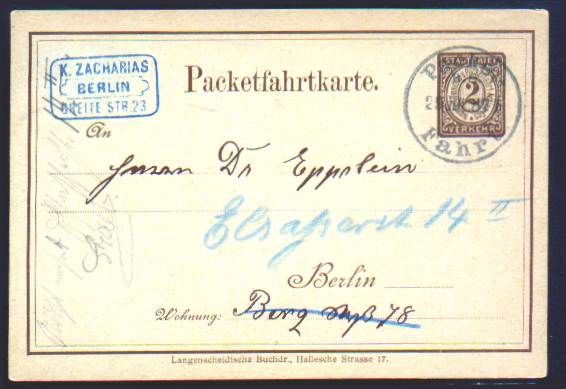 K. ZACHARIAS
BERLIN
BREITE STR. 23
Packetfahrtkarte.
STADTBRIEF
2
VERKEHR
Fahrt
An
Herrn Dr Eppstein
Elsasserst 14 II
Berlin
Wohnung: Berg str 78
Langenscheidtsche Buchdr., Hallesche Strasse 17.